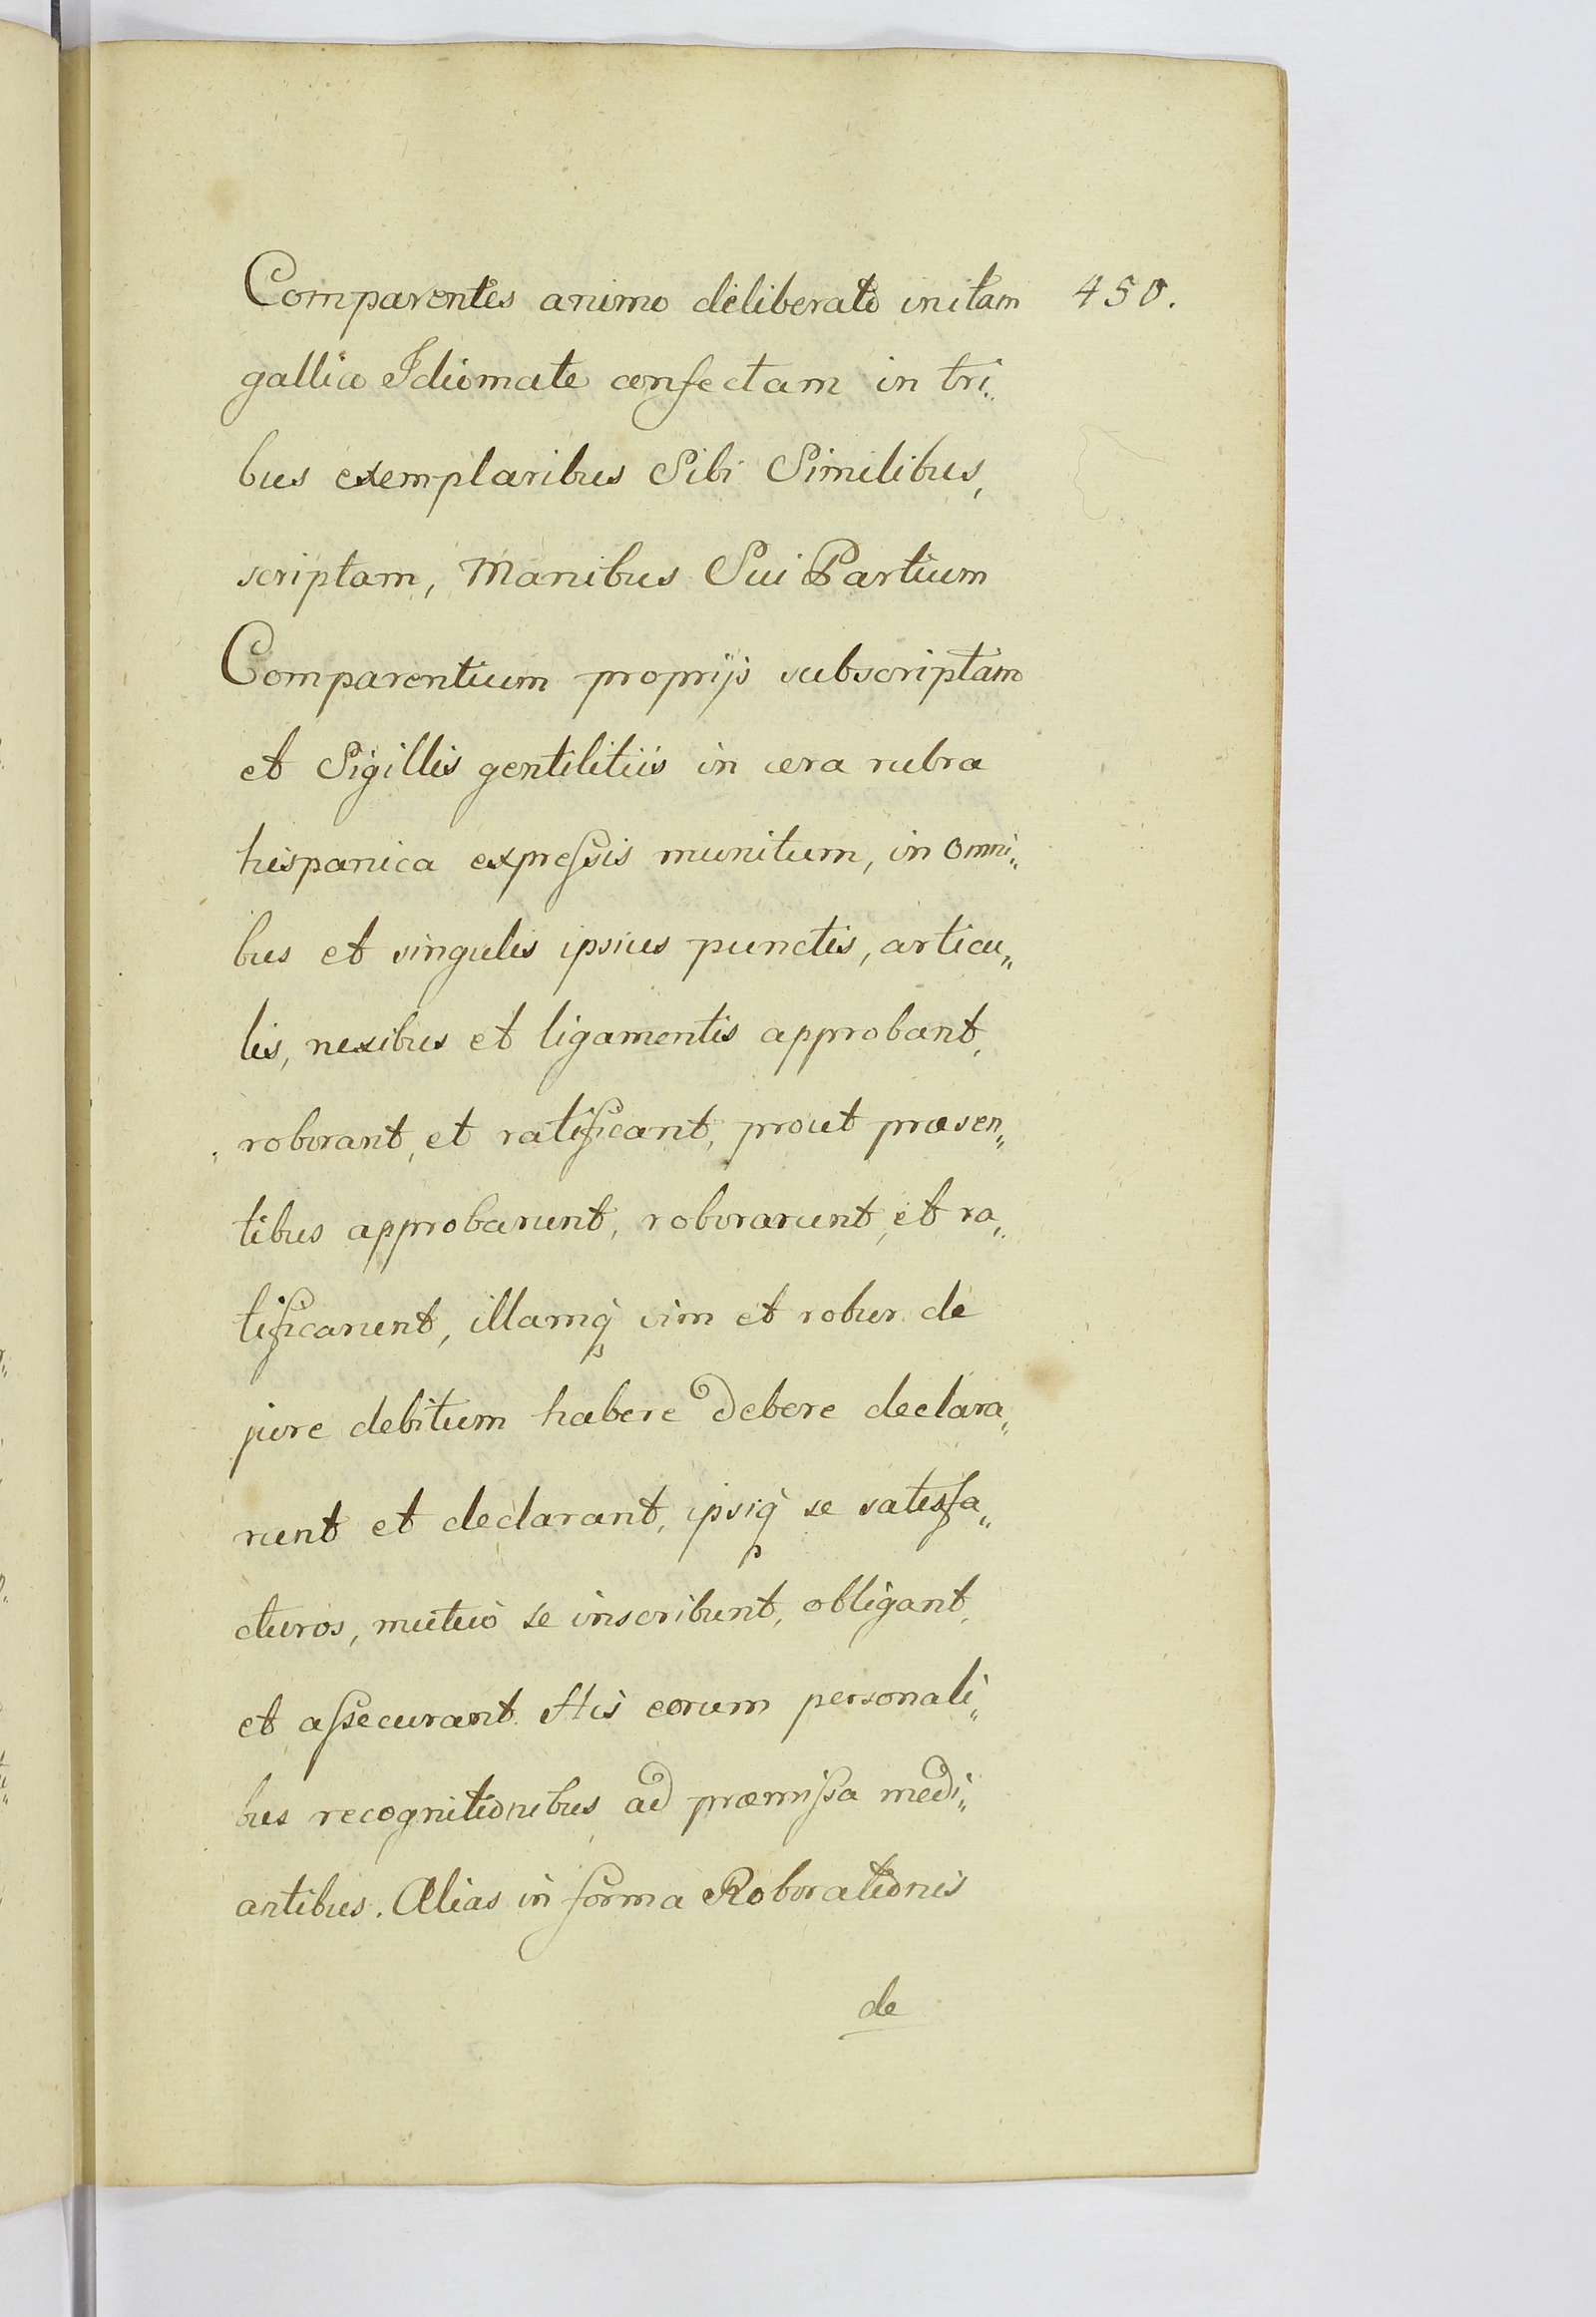 Comparentes animo deliberato initam 450.
gallico Idiomate confectam in tri„
bus exemplaribus Sibi Similibus,
scriptam, Manibus Sui Partium
Comparentium proprijs subscriptam
et Sigillis gentilitiis in cera rubra
hispanica expreſsis munitum, in omni„
bus et singulis ipsius punctis, articu„
lis, nexibus et ligamentis approbant,
roborant, et ratificant, prout præsen„
tibus approbarunt, roborarunt, et ra„
tificarunt, illamq vim et robur de
jure debitum habere debere declara„
runt et declarant, ipsiq se satisfa„
cturos, mutuo se inscribunt, obligant,
et aſsecurant. His eorum personali„
bus recognitionibus ad præmiſsa medi„
antibus. Alias in forma Roborationis
de